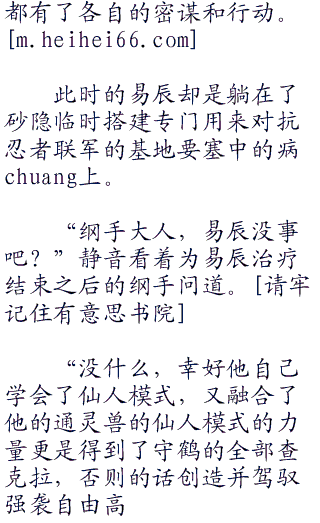 都有了各自的密谋和行动。
[m.heihei66.com]
此时的易辰却是躺在了
砂隐临时搭建专门用来对抗
忍者联军的基地要塞中的病
chuang上。
“纲手大人，易辰没事
吧？”静音看着为易辰治疗
结束之后的纲手问道。[请牢
记住有意思书院]
“没什么，幸好他自己
学会了仙人模式，又融合了
他的通灵兽的仙人模式的力
量更是得到了守鹤的全部查
克拉，否则的话创造并驾驭
强袭自由高